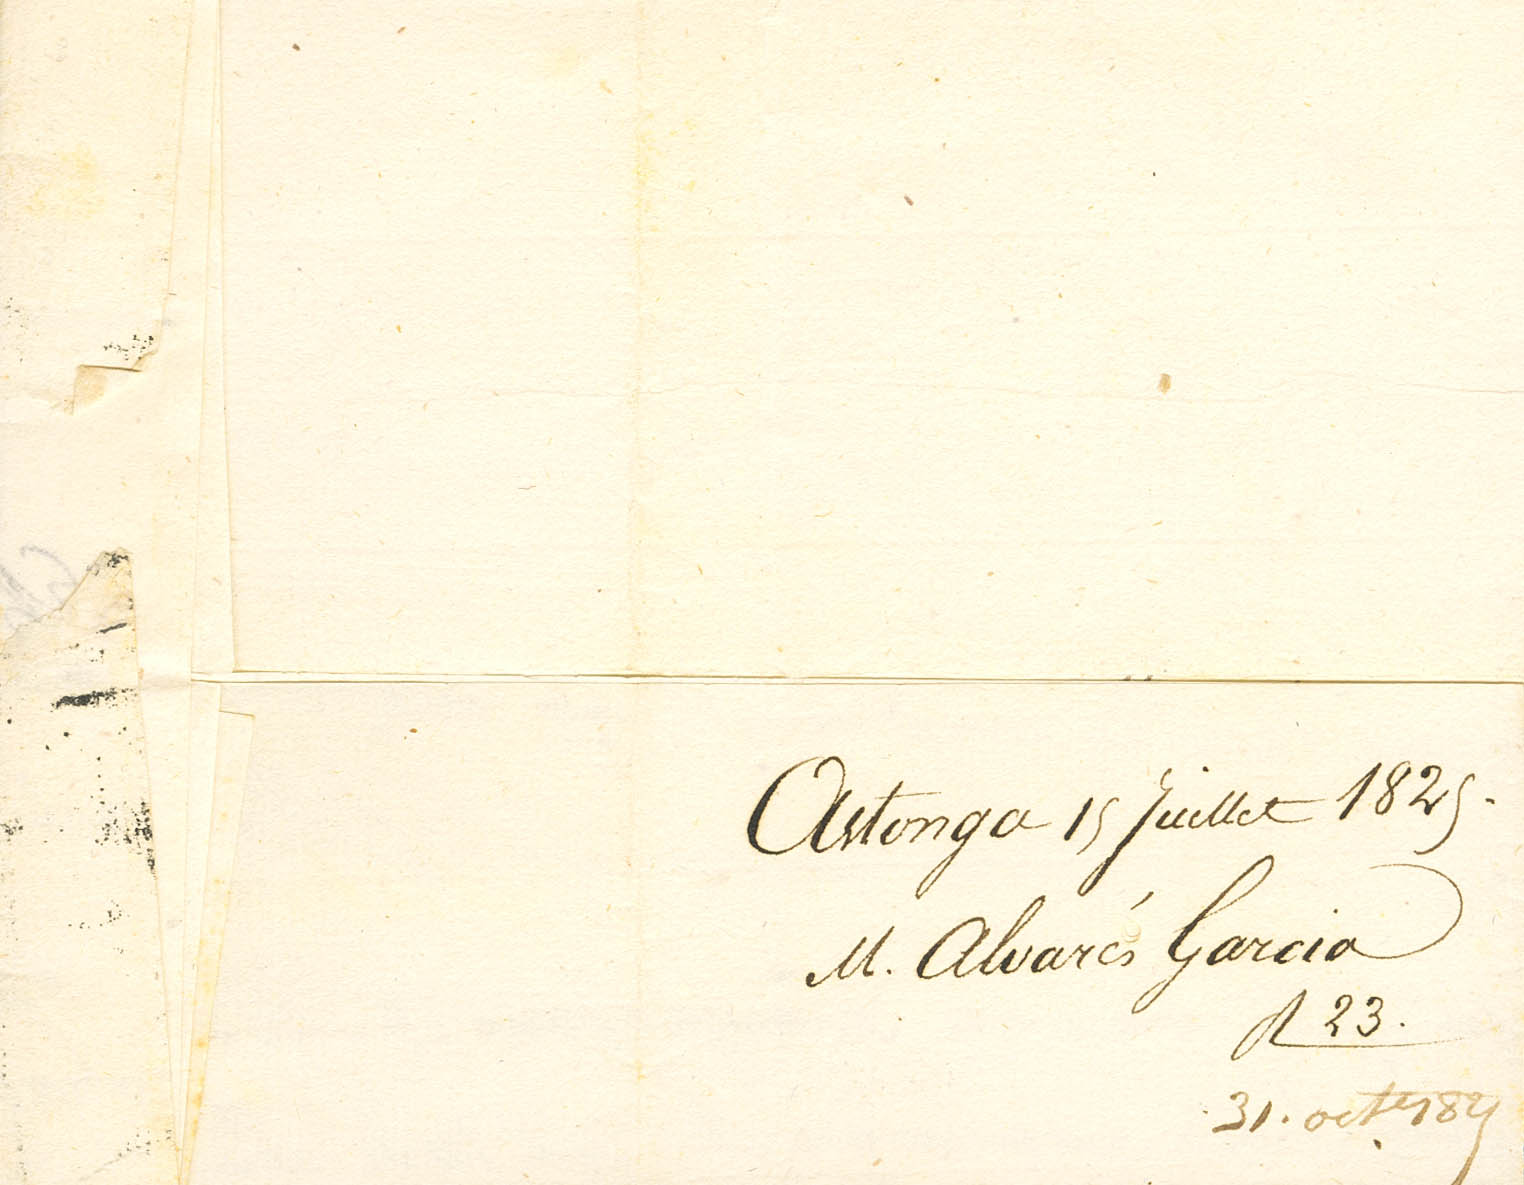 Astonga 15 Juillet 1825.
M. Alvarés Garcia
R 23.
31. octbre